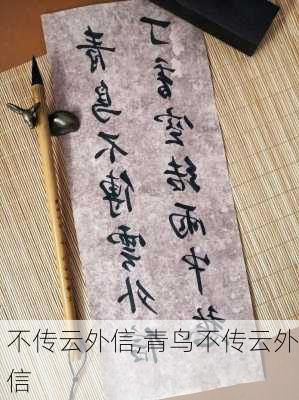 丁香空結雨中愁
青鳥不傳雲外信
不传云外信,青鸟不传云外
信